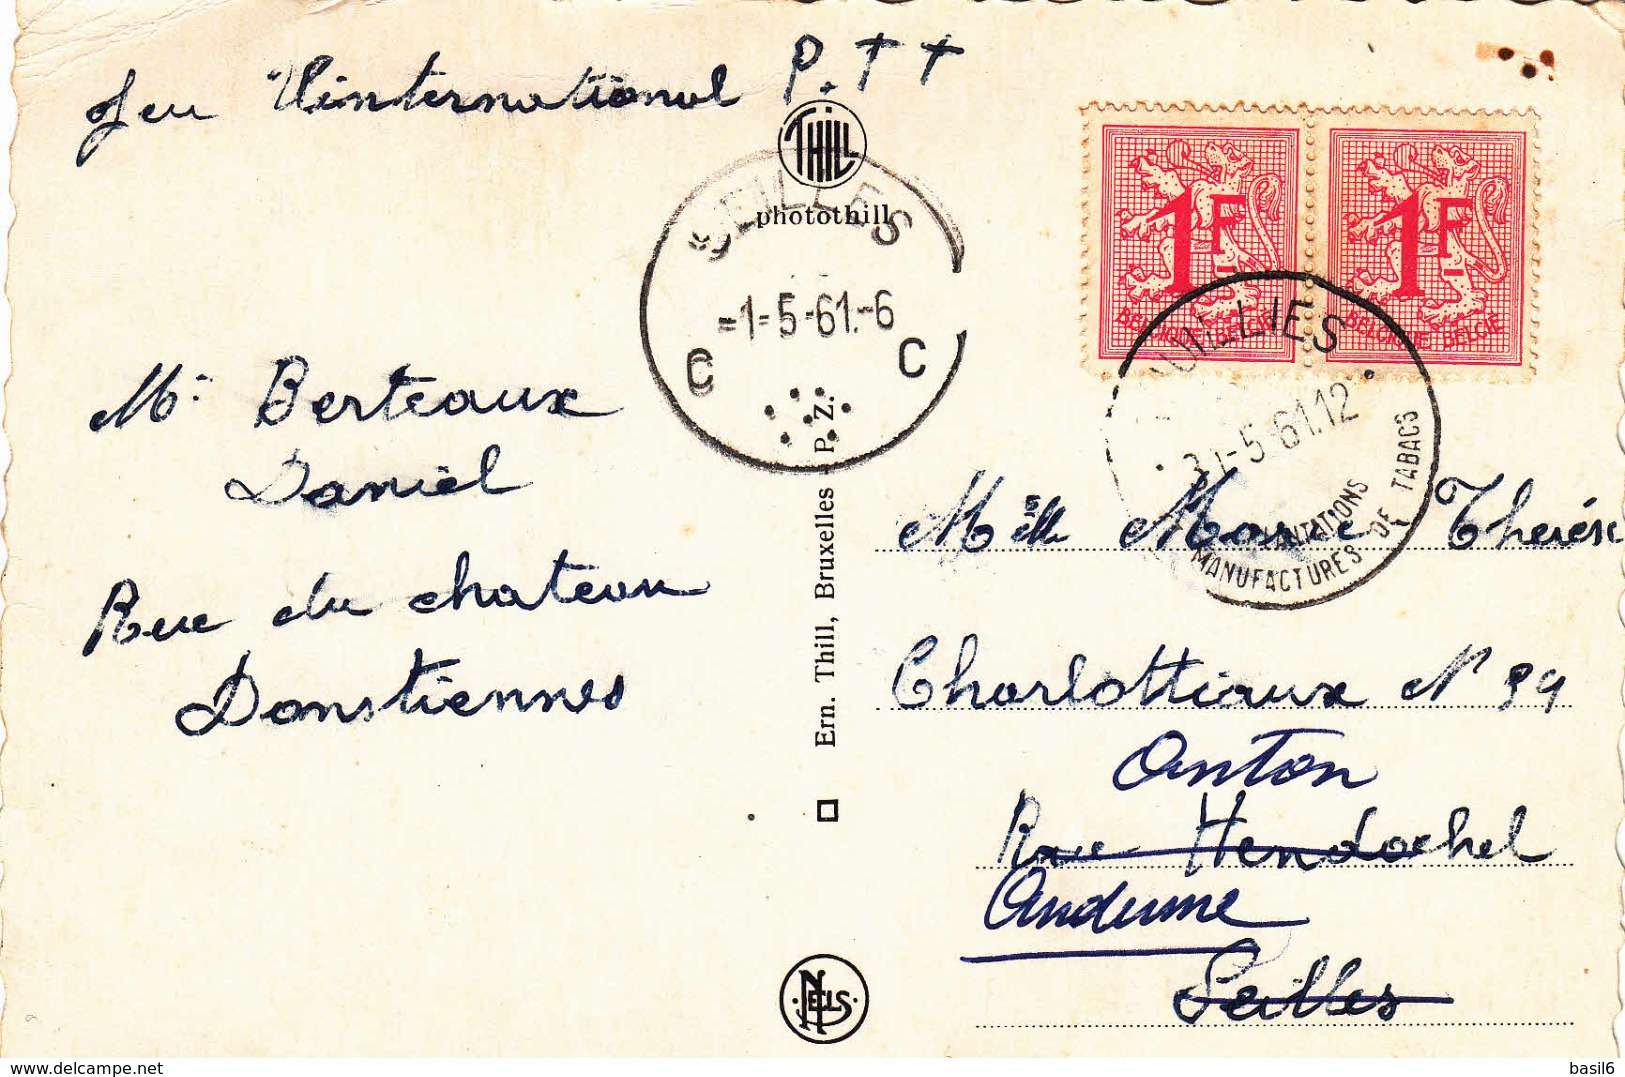 Jeu l'international P.TT
THILL
photothill
SEILLES
=1=5-61.-6
C C
1F
BELGIQUE BELGIE
1F
BELGIQUE BELGIE
UILLIES
31-5-61.12
PLANTATIONS
MANUFACTURES DE TABACS
Mr Berteaux
Daniel
Rue du chateau
Donstiennes
Ern. Thill, Bruxelles P. Z.
NELS
Melle Marie Thérèse
Charlottiaux N° 94
Anton
Rue Hendochel
Andenne
Seilles
basil6